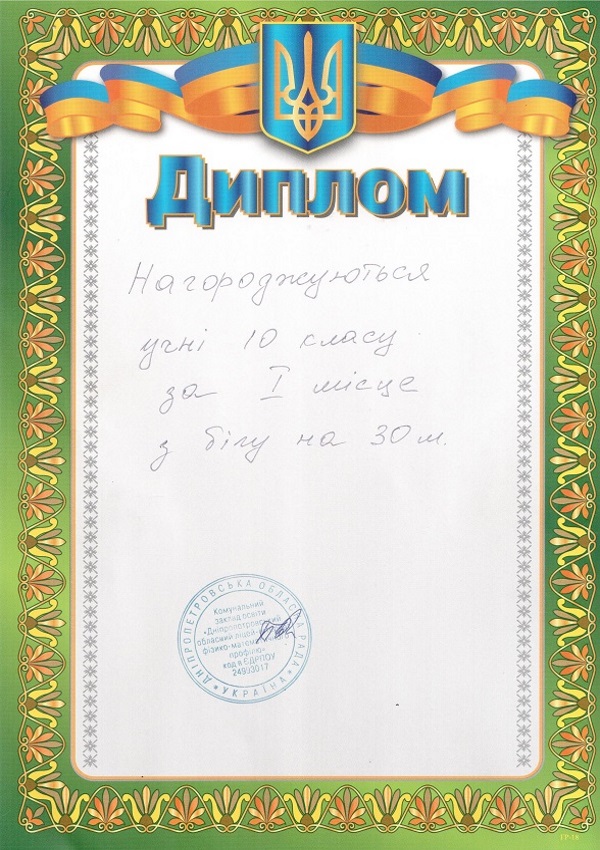 Диплом
Нагороджуються
учні 10 класу
за I місце
з бігу на 30 м.
ДНІПРОПЕТРОВСЬКА ОБЛАСНА РАДА
Комунальний
заклад освіти
«Дніпропетровський
обласний ліцей
фізико-математичного
профілю»
код в ЄДРПОУ
24993017
* УКРАЇНА *